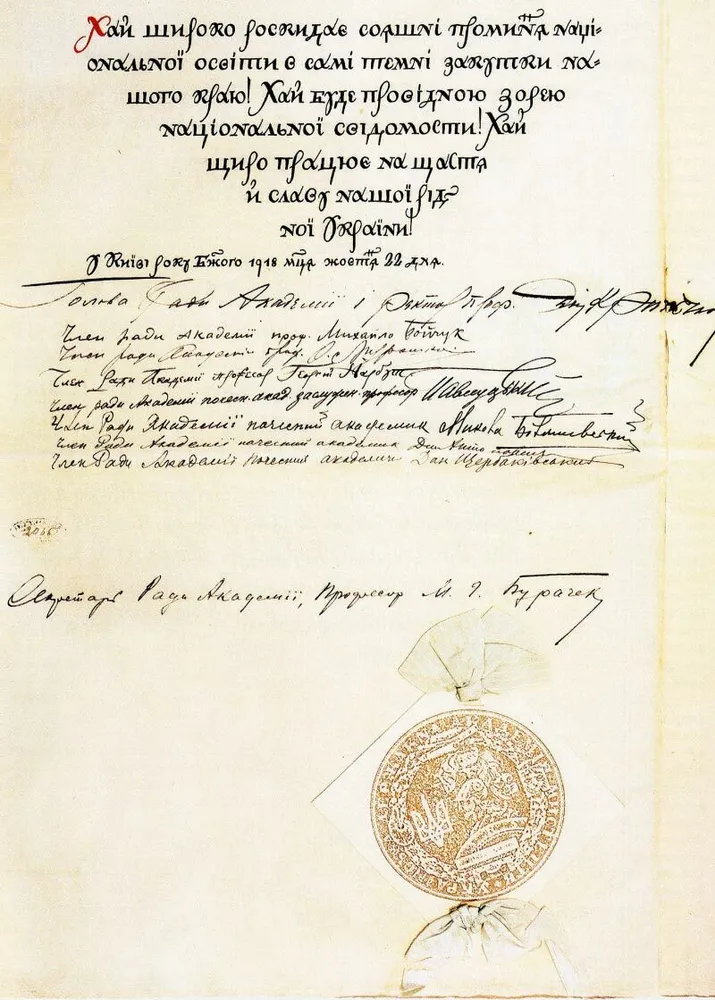 Хай широко роскидає сояшні проміння наці-
ональної освіти в самі темні закутки на-
шого краю! Хай буде провідною зорею
національної свідомости! Хай
щиро працює на щастя
й славу нашої рід-
ної України!
У Київі року Божого 1918 мця жовтня 22 дня.
Голова Ради Академії і ректор проф.
Член ради академії проф. Михайло Бойчук
Член ради Академії проф.
Член Ради Академії професор Георгій Нарбут
Член ради Академії почесн. акад. заслужен. професор
Член Ради Академії почесний академик Микола Біляшевський
Член Ради Академії почесний академик Дм. Антонович
Член Ради Академії почесний академик Дан. Щербаківський
2046
Секретарь Ради Академії, Професор М. Г. Бурачек